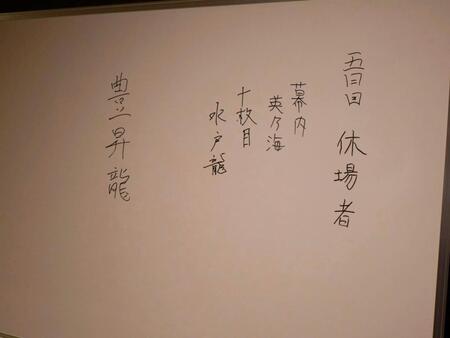 五日目 休場者
幕内
英乃海
十枚目
水戸龍
豊昇龍